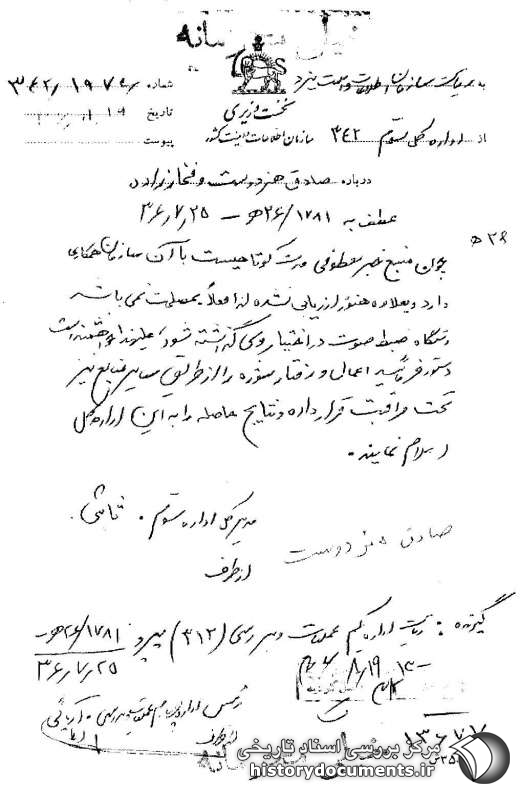 خیلی محرمانه
به ریاست سازمان اطلاعات و امنیت یزد
شماره ۳۴۲/۱۹۷۴
نخست وزیری
تاریخ
از اداره کل سوم ۳۴۲
سازمان اطلاعات و امنیت کشور
پیوست
درباره صادق هنردوست و فخارزاده
عطف به ۲۶/۱۷۸۱ ه‍ - ۳۶٫۷٫۲۵
۲۶ ه‍
چون منبع خبر معطوفی مدت کوتاهیست با آن سازمان همکاری
دارد و بعلاوه هنوز ارزیابی نشده لذا فعلا بمصلحت نمی باشد
دستگاه ضبط صوت در اختیار وی گذاشته شود، علیهذا خواهشمند است
دستور فرمائید اعمال و رفتار را از طریق سایر منابع نیز
تحت مراقبت قرار داده و نتایج حاصله را به این اداره کل
اعلام نمایند.
مدیر کل اداره سوم.
از طرف
صادق هنردوست
گیرنده: ریاست اداره یکم عملیات و بررسی (۳۱۲) پیرو ۲۶/۱۷۸۱ ه‍
۳۶/۷/۲۵
رئیس اداره
از طرف
محرمانه
مرکز بررسی اسناد تاریخی
historydocuments.ir